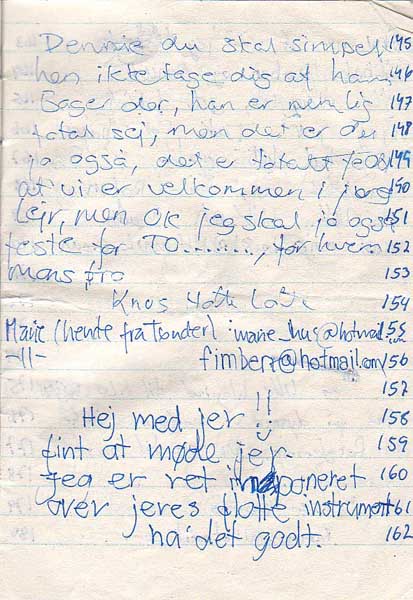 Dennie du skal simpelt 145
hen ikke tage dig af ham 146
Bager der, han er nemlig 147
total sej, men det er du 148
jo også, det er totalt 149
at vi er velkommen i jeres 150
lejr, men OK jeg skal jo også 151
feste for TO........, for hvem 152
mons tro 153
Knus 154
Marie (hende fra Tønder) : marie_hus@hotmail.com 155
-11- fimberz@hotmail.com 156
157
Hej med jer!! 158
fint at møde jer. 159
Jeg er ret imponeret 160
over jeres flotte instrument 161
ha' det godt. 162